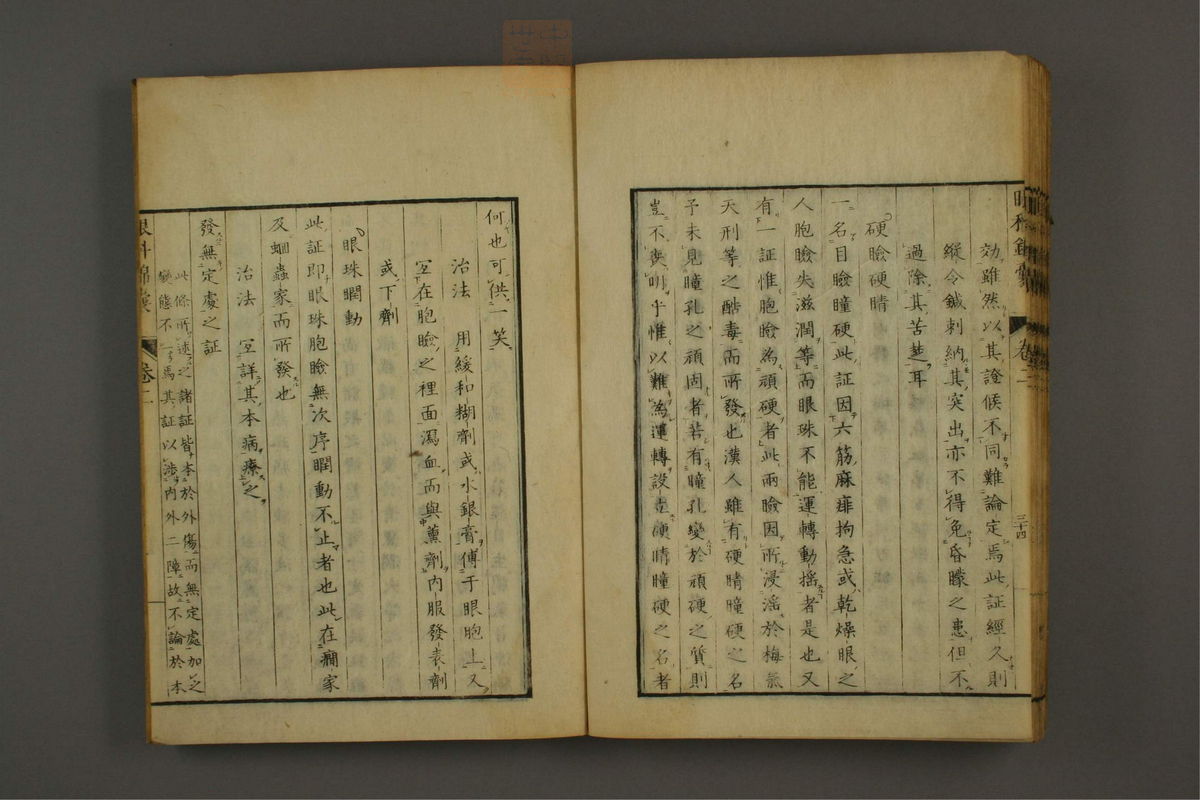 眼科錦囊 卷二 三十四
効雖然以其證候不同難論定焉此証經久則
縱令鍼刺納其突出亦不得免昏矇之患但不
過除其苦楚耳
硬瞼硬睛
一名目瞼瞳硬此証因六筋麻痺拘急或乾燥眼之
人胞瞼失滋潤等而眼珠不能運轉動搖者是也又
有一証惟胞瞼為頑硬者此兩瞼因所浸淫於梅氣
天刑等之酷毒而所發也漢人雖有硬睛瞳硬之名
予未見瞳孔之頑固者若有瞳孔變於頑硬之質則
豈不喪明乎惟以難為運轉設立硬睛瞳硬之名者
何也可供一笑
治法 用緩和糊劑或水銀膏傅于眼胞上又
宜在胞瞼之裡面瀉血而與薰劑內服發表劑
或下劑
眼珠瞤動
此証即眼珠胞瞼無次序瞤動不止者也此在癇家
及蛔蟲家而所發也
治法 宜詳其本病療之
發無定處之証
此條所述之諸証皆本於外傷而無定處加之
變態不一焉其証以涉內外二障故不論於本
眼科錦囊 卷二